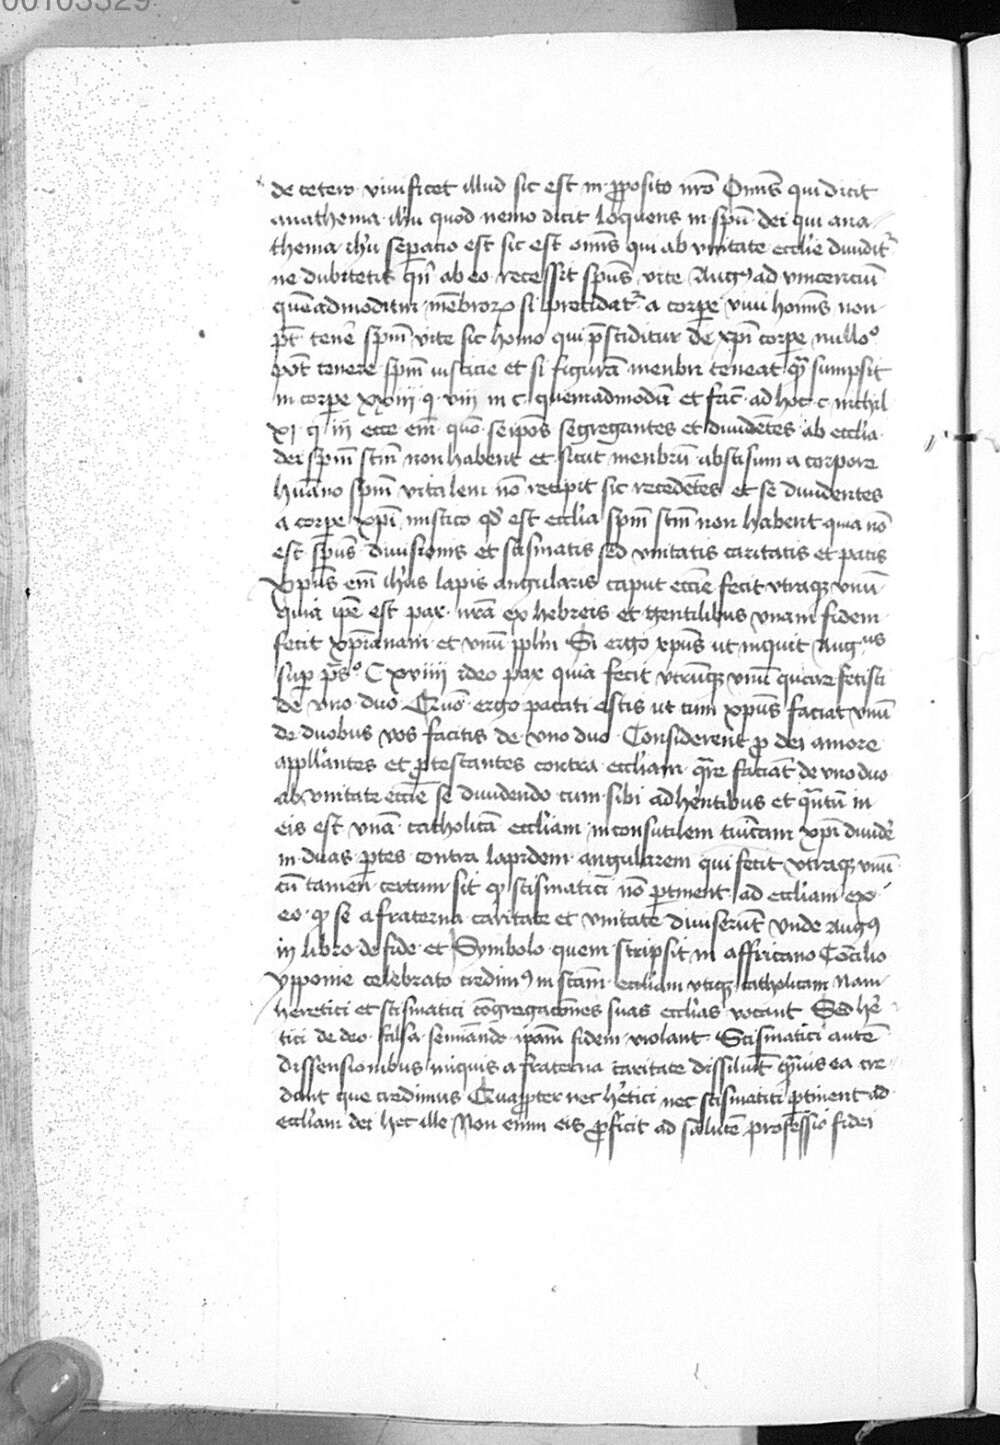 00103329
de cetero viuificet illud sic est in p̱posito nr̄o Omīs qui dicit
anathema ih̄u quod nemo dicit loquens in sp̄u dei qui ana-
thema ih̄u sep̱atio est sic est omīs qui ab vnitate eccl̄ie diuidit᷑
ne dubitetis qn̄ ab eo recessit sp̄us vite Augꝰ ad vincenciū
quēadmodum mēbroꝝ si precidat᷑ a corpe viui homīs non
pt̄ tenēr sp̄m vite sic homo qui p̄sciditur de xp̄i corpe nulloº
pōt tenere sp̄m iusticie et si figurā menbri teneat qꝫ sumpsit
in corpe xxiiij q viij in c quemadmodū et fac̄ ad hoc c nichil
xj q iij ecce em̄ quō seip̄os segregantes et diuidētes ab eccl̄ia
dei sp̄m sc̄m non habent et sicut menbrū abscisum a corpore
hūano sp̄m vitalem nō recipit sic recedētes et se diuidentes
a corpe xp̄i mistico qd̄ est eccl̄ia sp̄m sc̄m non habent quia nō
est sp̄us diuisionis et scismatis sed vnitatis caritatis et pacis
Xp̄us em̄ ih̄us lapis angularis caput ecc̄ie fecit vtraqꝫ vnū
quia ip̄e est pax nr̄a ex hebreis et gentilibus vnam fidem
fecit xp̄ianam et vnū pp̄lm Si ergo xp̄us ut inquit Augus
sup̱ p̄s° C xviiij ideo pax quia fecit vtrūqꝫ vnū quare fecisti
de vno duo Quō ergo pacati estis ut cum xp̄us faciat vnū
de duobus vos facitis de vno duo Considerent p̱ dei amore
appll̄antes et p̱testantes contra eccl̄iam qr̄e faciāt de vno duo
ab vnitate ecc̄ie se diuidendo cum sibi adhēntibus et qn̄tū in
eis est vnā catholicā eccl̄iam inconsutilem tunicam xp̄i diuidēr
in duas p̱tes contra lapidem angularem qui fecit vtraqꝫ vnū
cū tamen certum sit qꝫ scismatici nō p̱tinent ad eccl̄iam ex
eo qꝫ se a fraterna caritate et vnitate diuiserūt vnde Augꝰ
in libro de fide et Symbolo quem scripsit in affricano Cōcilio
ypponie celebrato credimꝰ in sc̄am eccl̄iam vtiqꝫ catholicam Nam
heretici et scismatici cōgregacōnes suas eccl̄ias vocant Sed hēr
tici de deo falsa senciendo ip̄am fidem violant Scismatici autē
dissensionibus iniquis a fraterna caritate dissiliūt qͣmuis ea cre-
dant que credimus Quap̱pter nec hētici nec scismatici p̱tinent ad
eccl̄iam dei hec ille Non enim eis p̱ficit ad salutē professio fidei